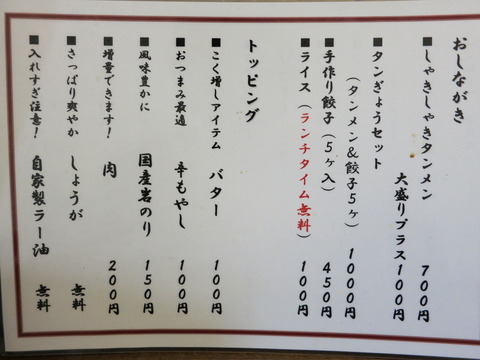 おしながき
■しゃきしゃきタンメン 700円
大盛りプラス100円
■タンぎょうセット
(タンメン&餃子5ヶ) 1000円
■手作り餃子(5ヶ入) 450円
■ライス(ランチタイム無料) 100円
トッピング
■こく増しアイテム バター 100円
■おつまみ最適 辛もやし 100円
■風味豊かに 国産岩のり 150円
■増量できます! 肉 200円
■さっぱり爽やか しょうが 無料
■入れすぎ注意! 自家製ラー油 無料